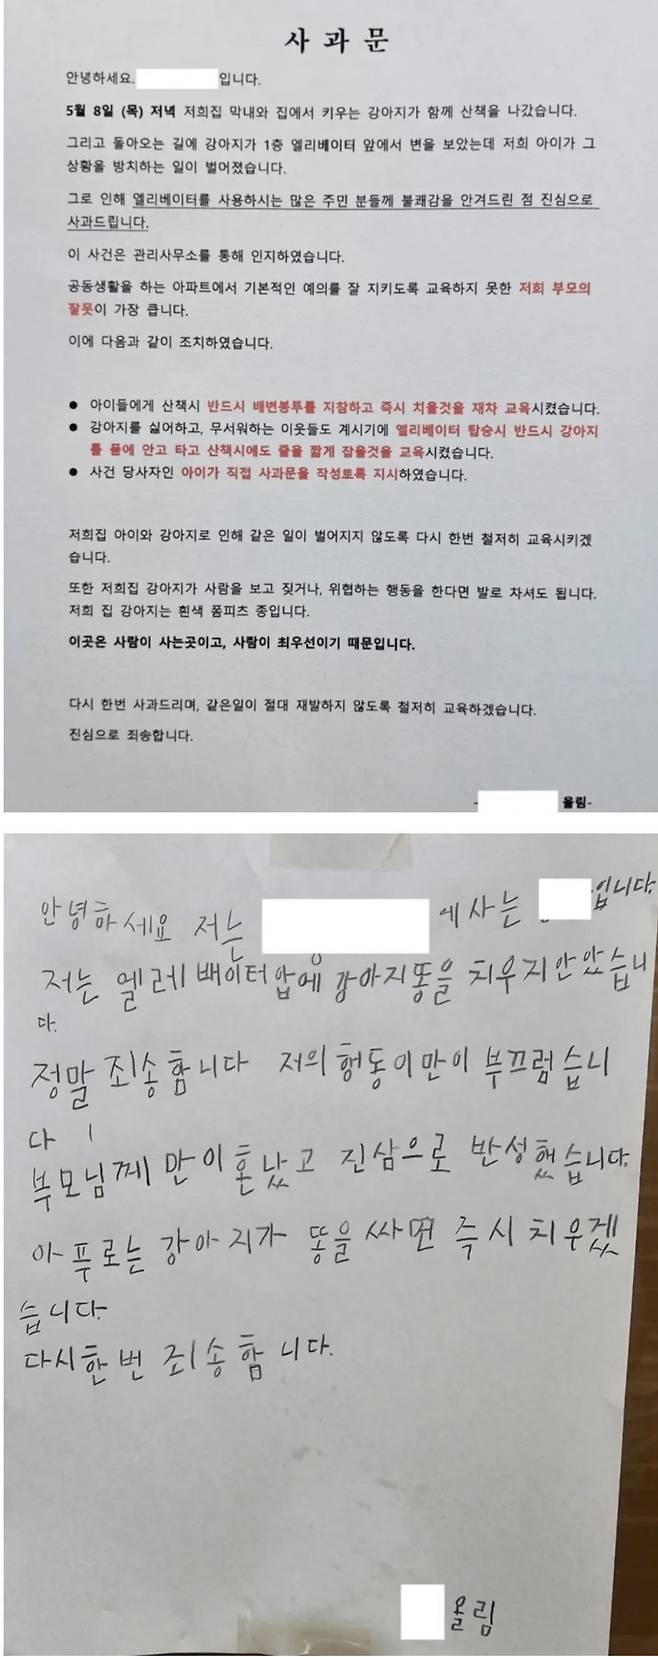 사 과 문
안녕하세요. 입니다.
5월 8일 (목) 저녁 저희집 막내와 집에서 키우는 강아지가 함께 산책을 나갔습니다.
그리고 돌아오는 길에 강아지가 1층 엘리베이터 앞에서 변을 보았는데 저희 아이가 그
상황을 방치하는 일이 벌어졌습니다.
그로 인해 엘리베이터를 사용하시는 많은 주민 분들께 불쾌감을 안겨드린 점 진심으로
사과드립니다.
이 사건은 관리사무소를 통해 인지하였습니다.
공동생활을 하는 아파트에서 기본적인 예의를 잘 지키도록 교육하지 못한 저희 부모의
잘못이 가장 큽니다.
이에 다음과 같이 조치하였습니다.
● 아이들에게 산책시 반드시 배변봉투를 지참하고 즉시 치울것을 재차 교육시켰습니다.
● 강아지를 싫어하고, 무서워하는 이웃들도 계시기에 엘리베이터 탑승시 반드시 강아지
를 품에 안고 타고 산책시에도 줄을 짧게 잡을것을 교육시켰습니다.
● 사건 당사자인 아이가 직접 사과문을 작성토록 지시하였습니다.
저희집 아이와 강아지로 인해 같은 일이 벌어지지 않도록 다시 한번 철저히 교육시키겠
습니다.
또한 저희집 강아지가 사람을 보고 짖거나, 위협하는 행동을 한다면 발로 차셔도 됩니다.
저희 집 강아지는 흰색 폼피츠 종입니다.
이곳은 사람이 사는곳이고, 사람이 최우선이기 때문입니다.
다시 한번 사과드리며, 같은일이 절대 재발하지 않도록 철저히 교육하겠습니다.
진심으로 죄송합니다.
- 올림-
안녕하세요 저는 에 사는 입니다.
저는 엘레배이터압에 강아지똥을 치우지안았습니
다.
정말 죄송합니다 저의 행동이만이 부끄럽습니
다
부모님께 만이혼났고 진삼으로 반성했습니다.
아푸로는 강아지가 똥을 싸면 즉시 치우겠
습니다.
다시한번 죄송합니다.
올림